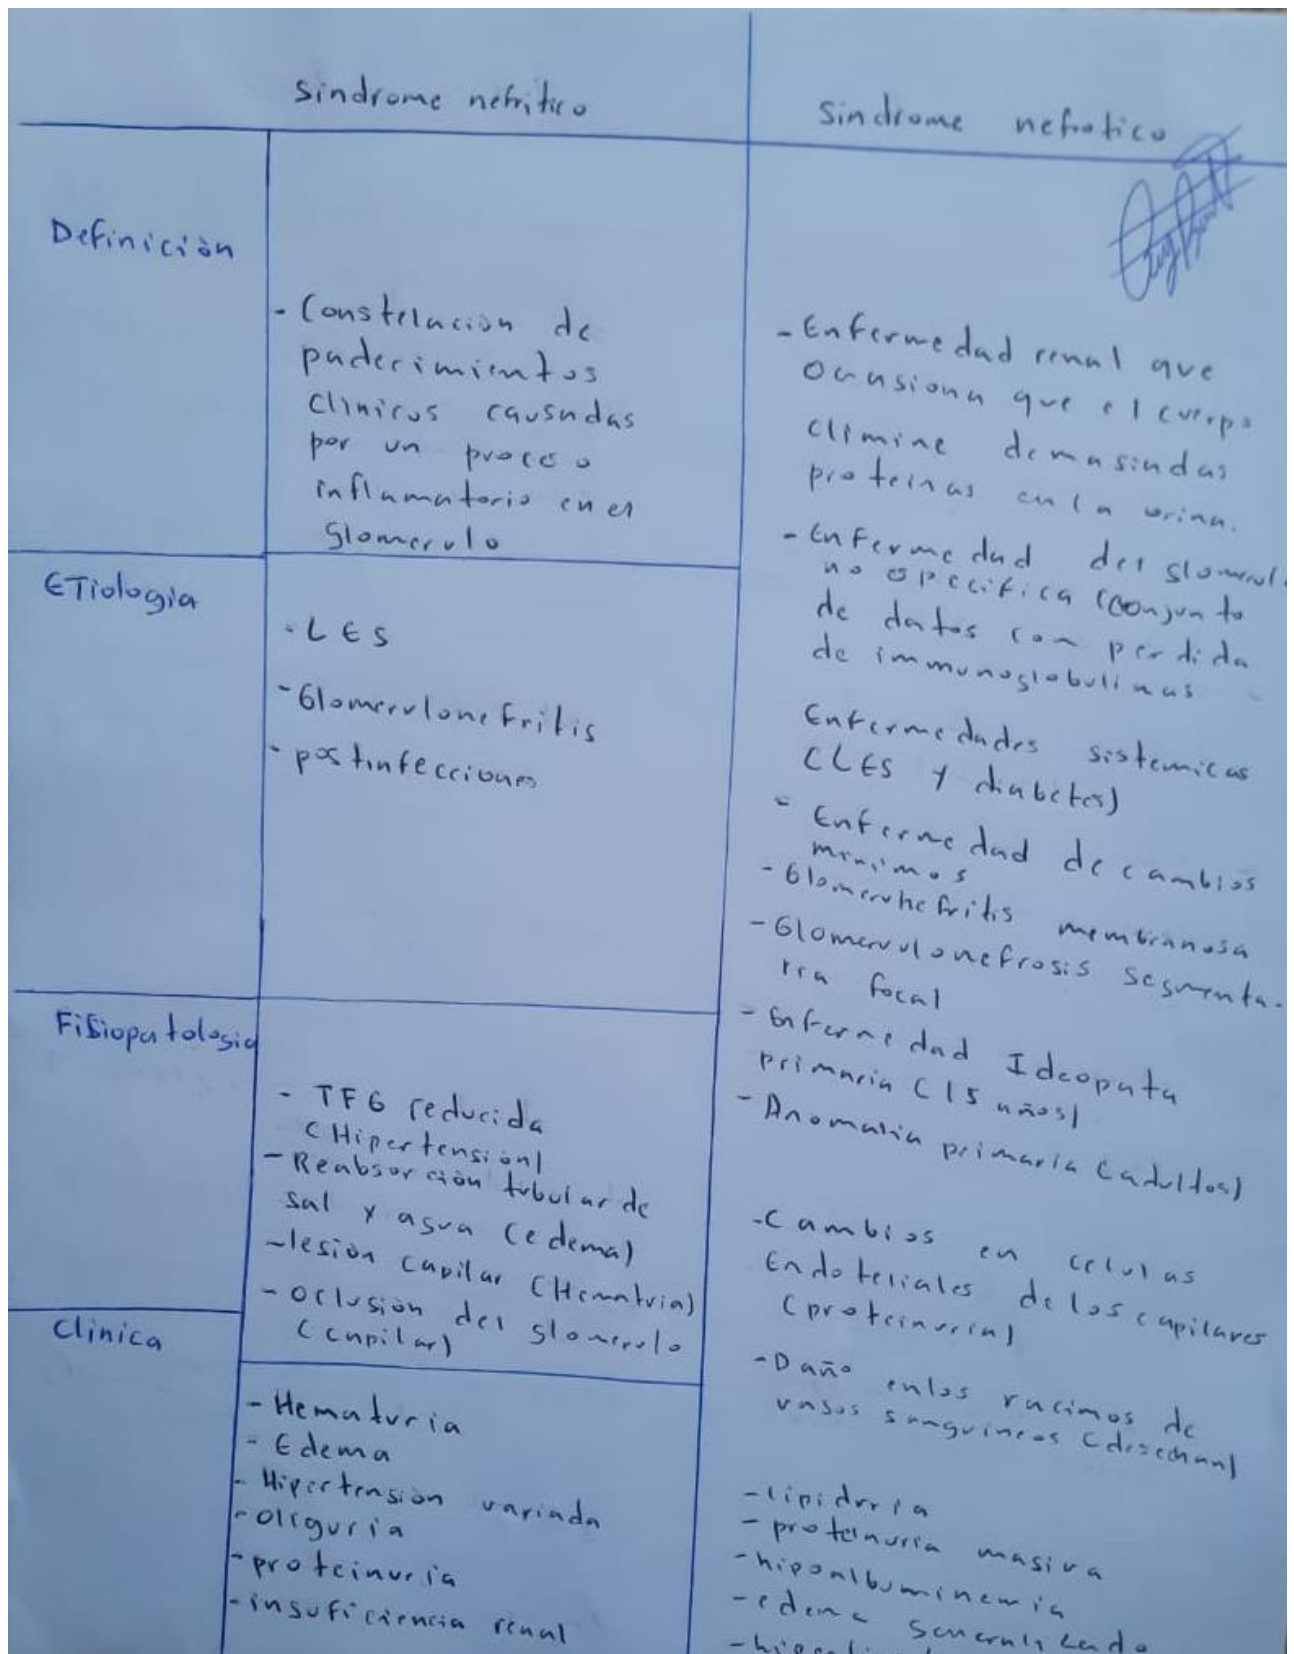 sindrome nefritico
sindrome nefrotico
Definición
- Constelación de
padecimientos
clinicos causadas
por un proceso
inflamatorio en el
glomerulo
- Enfermedad renal que
ocasiona que el cuerpo
elimine demasiadas
proteinas en la orina.
- Enfermedad del glomerul
no especifica (conjunto
de datos con perdida
de immunoglobulinas
ETiologia
- LES
- Glomerulonefritis
- postinfecciones
Enfermedades sistemicas
(LES y diabetes)
- Enfermedad de cambios
minimos
- Glomerunefritis membranosa
- Glomerulonefrosis segmenta-
ria focal
- Enfermedad Ideopata
primaria (15 años)
- Anomalia primaria (adultos)
Fisiopatologia
- TFG reducida
(Hipertensión)
- Reabsorción tubular de
sal y agua (edema)
- lesión capilar (Hematuria)
- oclusión del glomerulo
(capilar)
- Cambios en celulas
Endoteliales de los capilares
(proteinuria)
- Daño en los racimos de
vasos sanguineos (desechan)
Clinica
- Hematuria
- Edema
- Hipertensión variada
- oliguria
- proteinuria
- insuficiencia renal
- lipiduria
- proteinuria masiva
- hipoalbuminemia
- edema generalizado